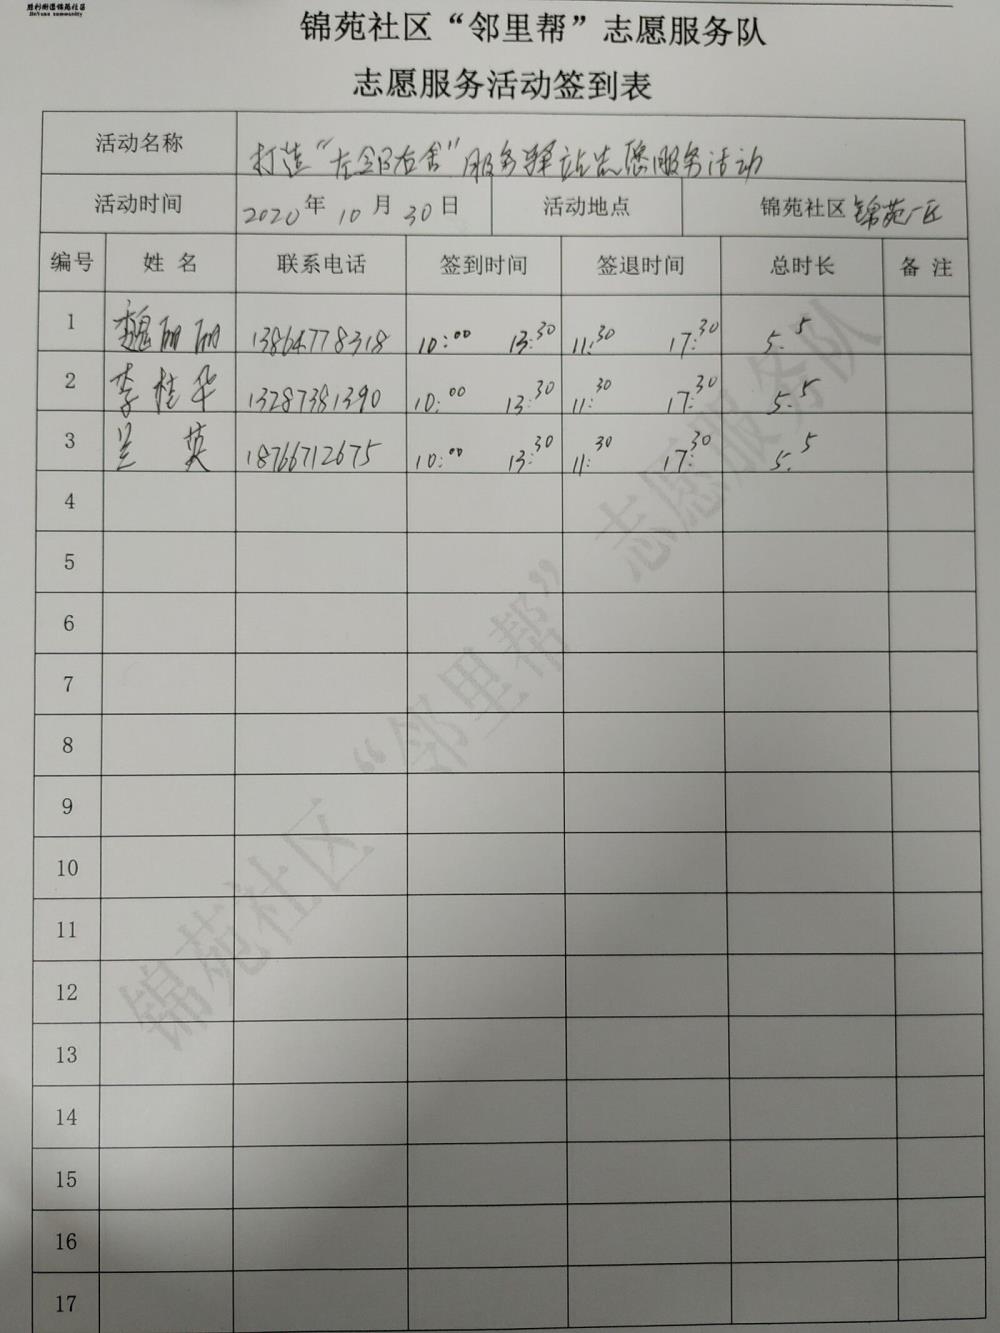 胜利街道锦苑社区
JinYuan community
锦苑社区“邻里帮”志愿服务队
志愿服务活动签到表
活动名称 打造“左邻右舍”服务驿站志愿服务活动
活动时间 2020年10月30日 活动地点 锦苑社区锦苑一区
编号 姓名 联系电话 签到时间 签退时间 总时长 备注
1 魏丽丽 13864778318 10:00 13:30 11:30 17:30 5.5
2 李桂华 13287381390 10:00 13:30 11:30 17:30 5.5
3 兰英 18766712675 10:00 13:30 11:30 17:30 5.5
4
5
6
7
8
9
10
11
12
13
14
15
16
17
锦苑社区“邻里帮”志愿服务队